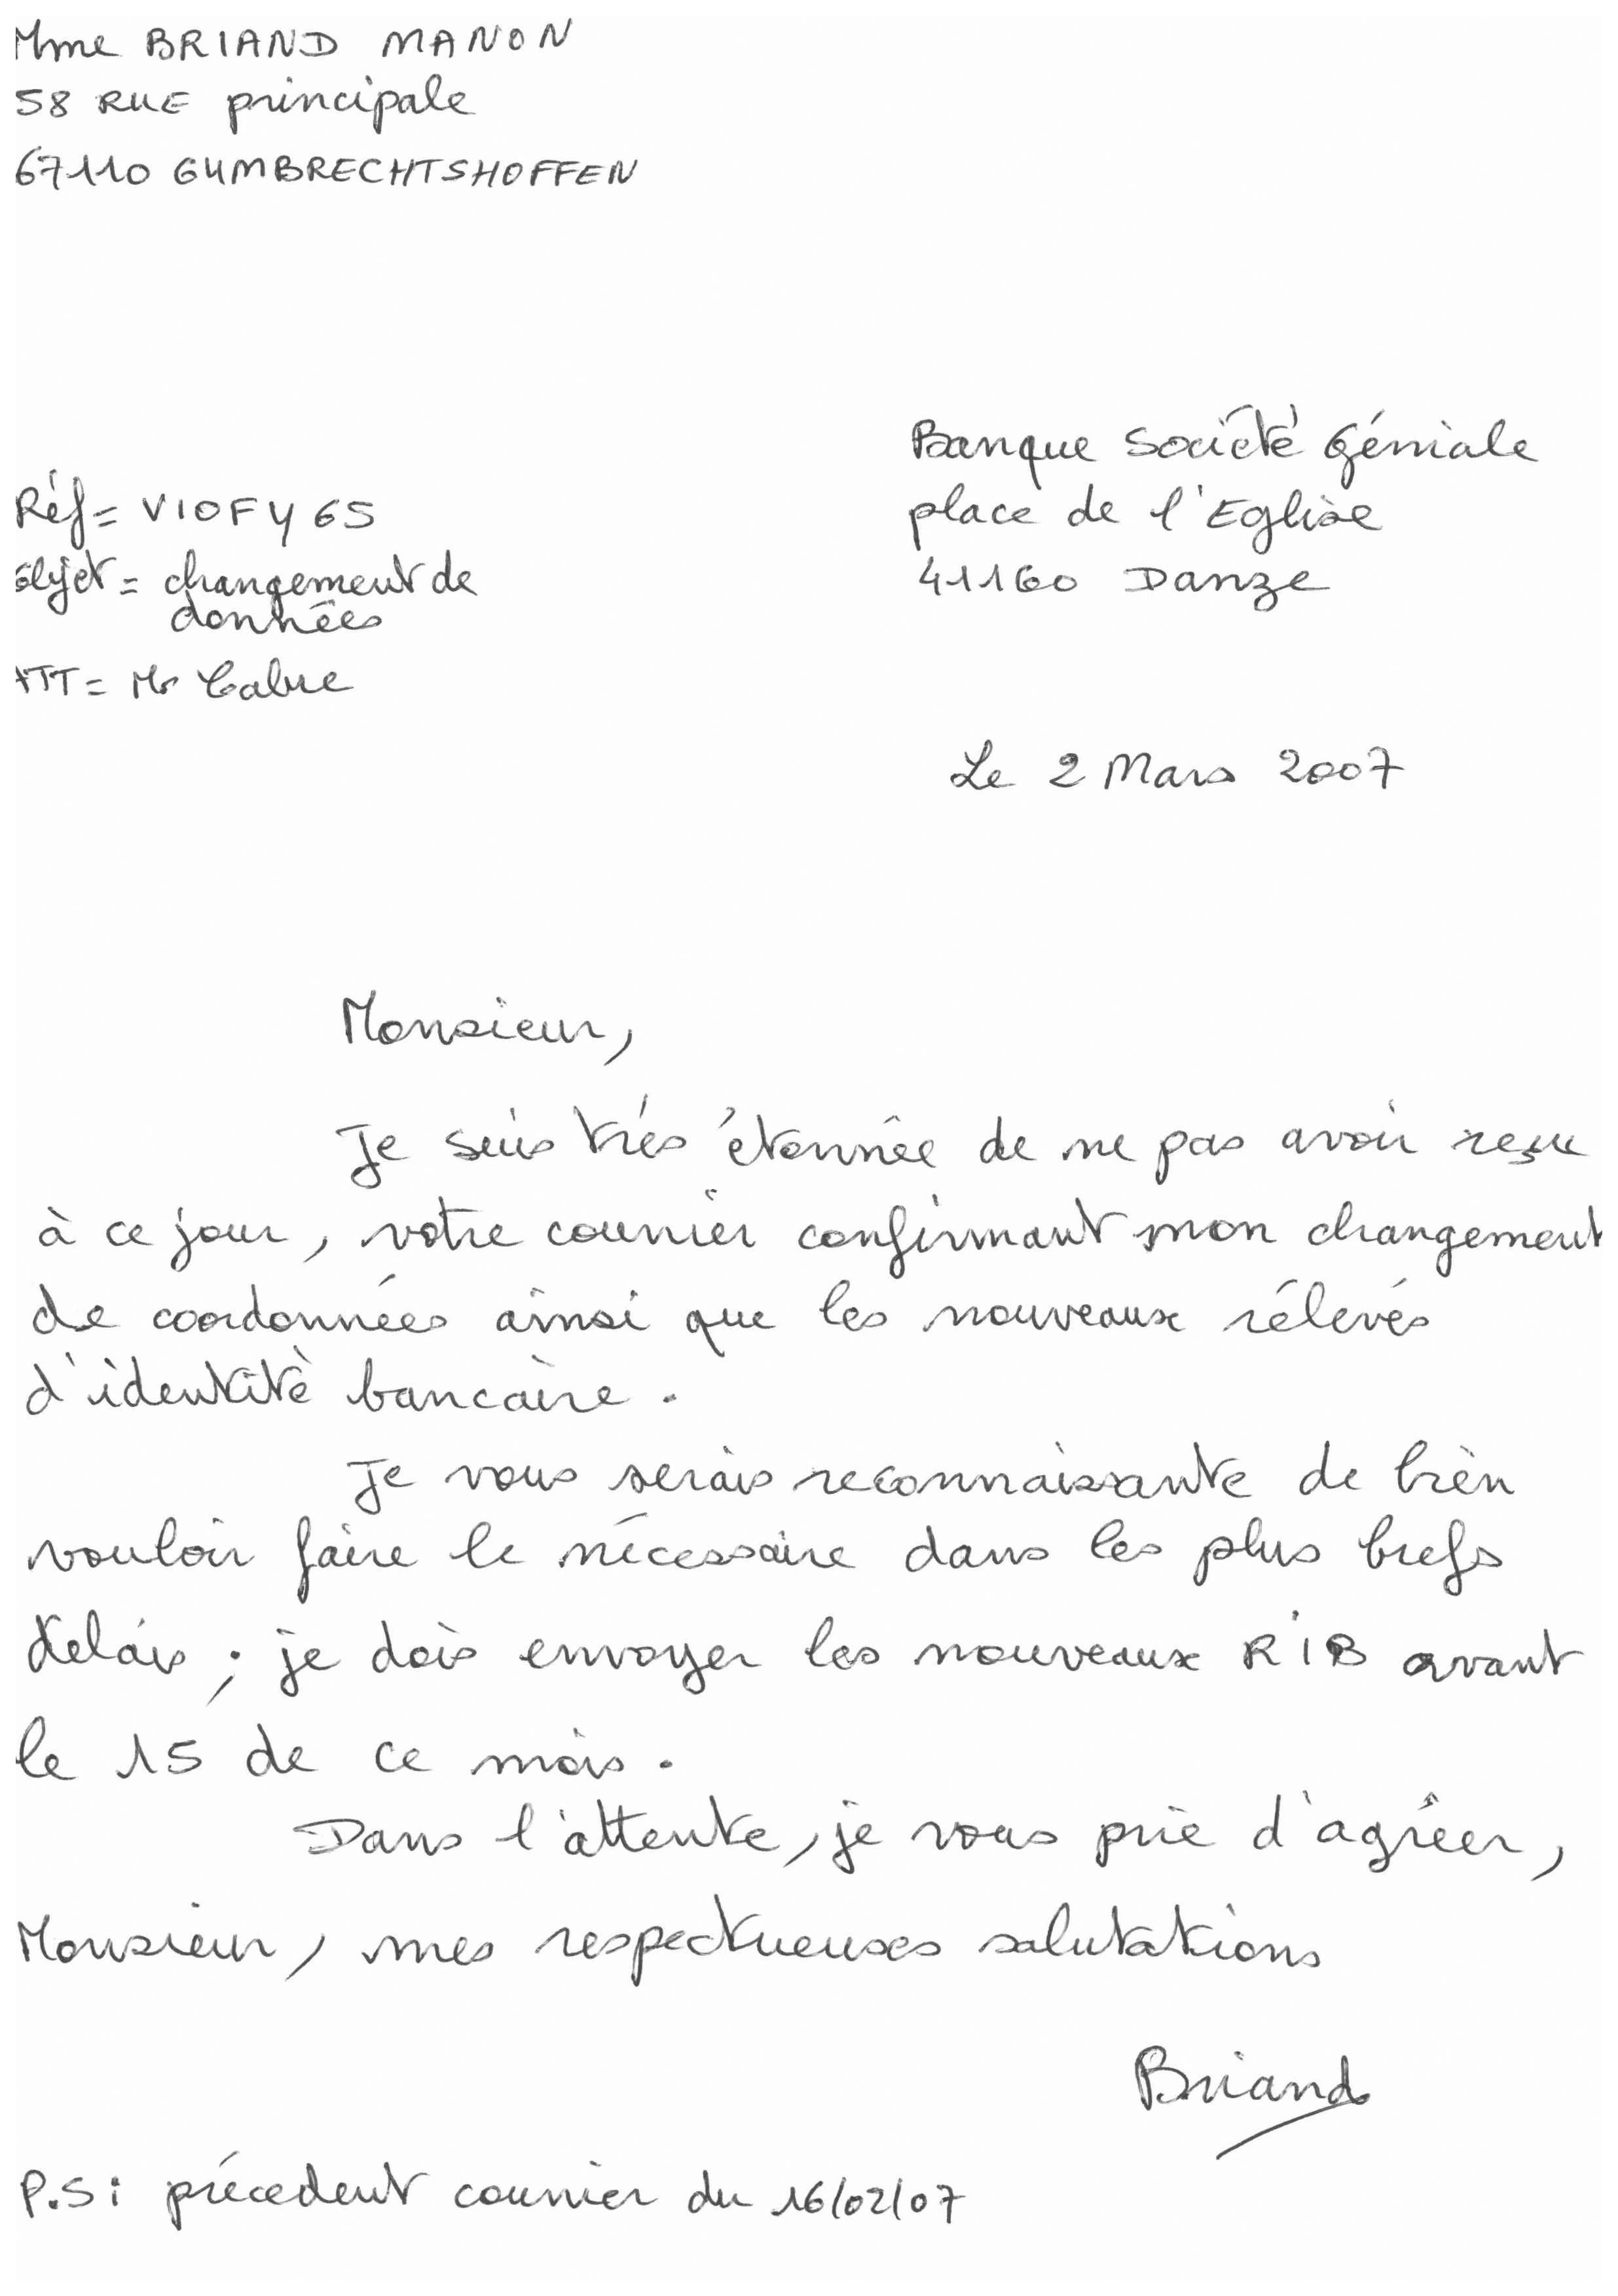 Mme BRIAND MANON
58 RUE principale
67110 GUMBRECHTSHOFFEN
Banque Société Géniale
place de l'Eglise
41160 Danze
Réf = VIOFY65
objet = changement de
données
ATT = Mr Cabre
Le 2 Mars 2007
Monsieur,
Je suis trés étonnée de ne pas avoir reçu
à ce jour, votre courrier confirmant mon changement
de coordonnées ainsi que les nouveaux rélevés
d'identité bancaire.
Je vous serais reconnaissante de bien
vouloir faire le nécessaire dans les plus brefs
delais ; je dois envoyer les nouveaux RIB avant
le 15 de ce mois.
Dans l'attente, je vous prie d'agréer,
Monsieur, mes respectueuses salutations
Briand
P.S : précedent courrier du 16/02/07